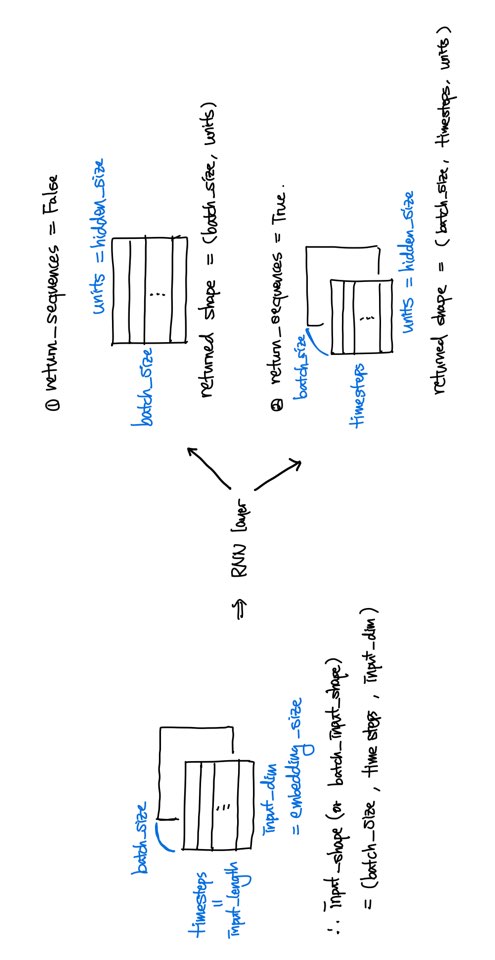 batch_size
timesteps
=
input_length
input_dim
= embedding_size
∴ input_shape (or batch_input_shape)
= (batch_size, time steps, input_dim)
⇒ RNN layer
① return_sequences = False
units = hidden_size
batch_size
returned shape = (batch_size, units)
② return_sequences = True.
batch_size
timesteps
units = hidden_size
returned shape = (batch_size, timesteps, units)